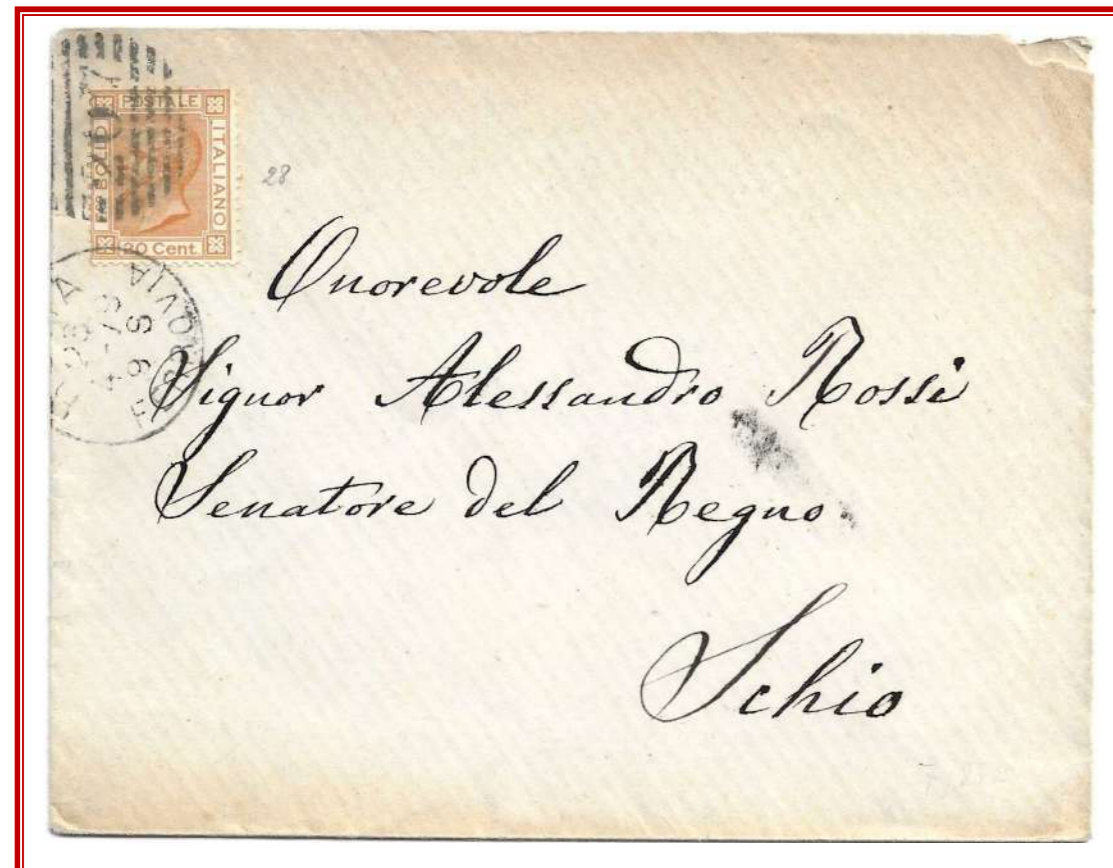 POSTALE
BOLLO
ITALIANO
20 Cent.
28
Onorevole
Signor Alessandro Rossi
Senatore del Regno
Schio